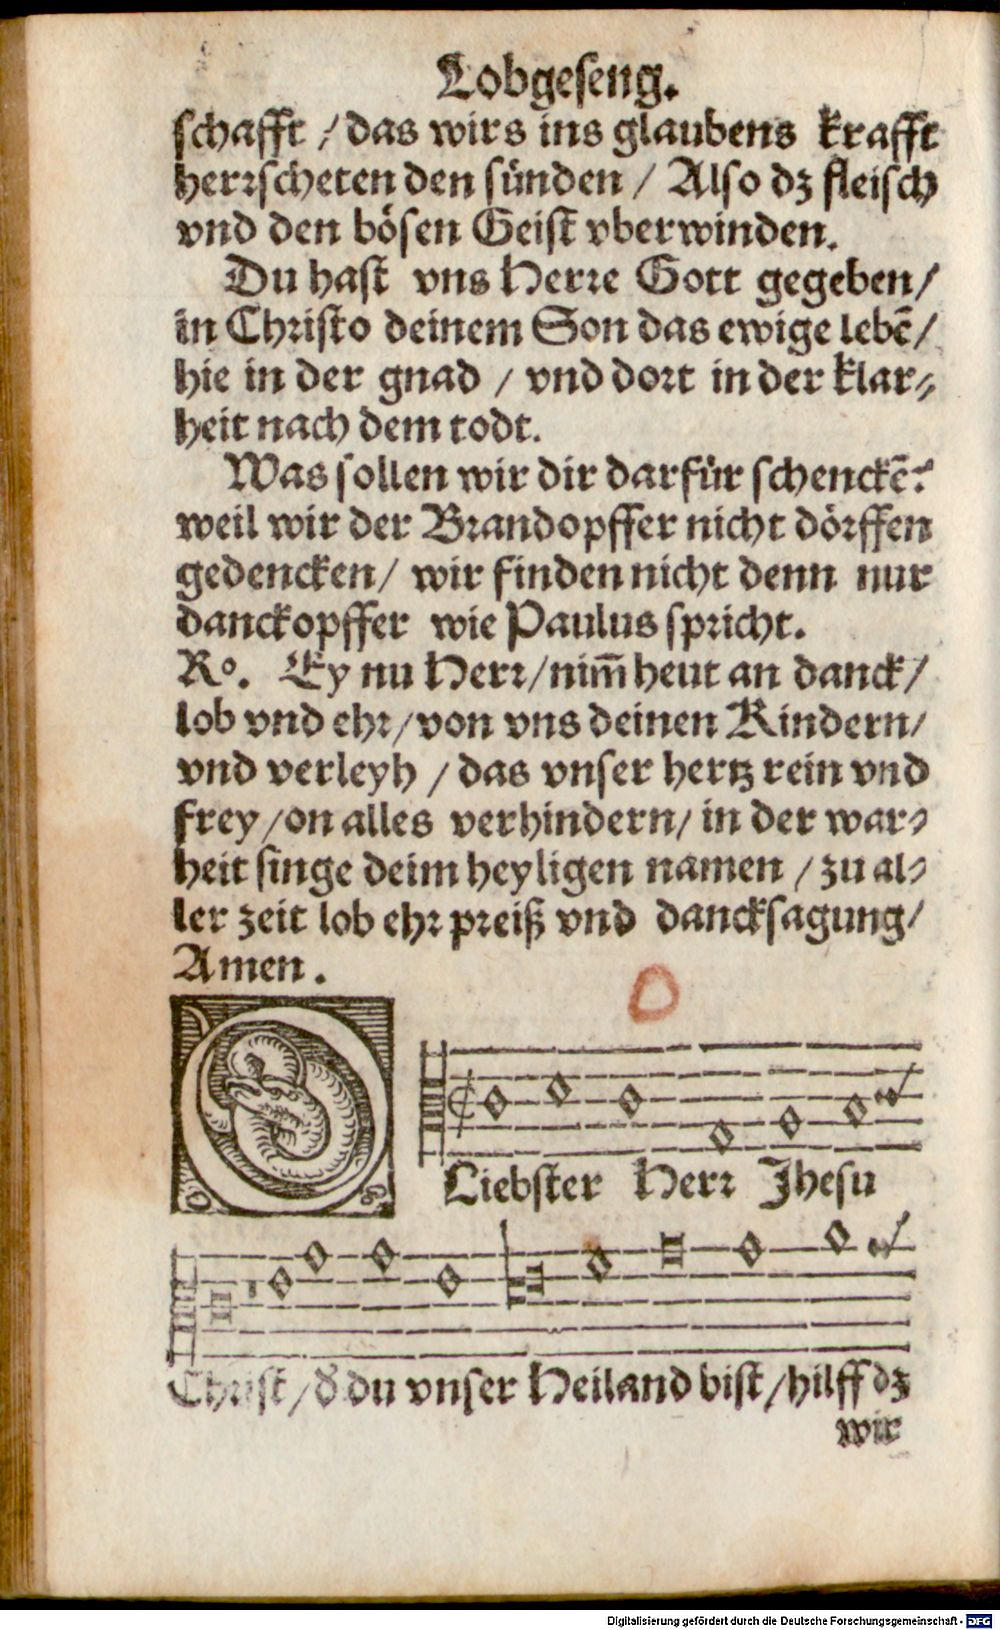 Lobgeseng.
schafft / das wirs ins glaubens krafft
herrscheten den sünden / Also dz fleisch
vnd den bösen Geist vberwinden.
Du hast vns Herre Gott gegeben /
in Christo deinem Son das ewige lebē /
hie in der gnad / vnd dort in der klar⸗
heit nach dem todt.
Was sollen wir dir darfür schenckē?
weil wir der Brandopffer nicht dörffen
gedencken / wir finden nicht denn nur
danckopffer wie Paulus spricht.
Rº. Ey nu Herr / nim̄ heut an danck /
lob vnd ehr / von vns deinen Kindern /
vnd verleyh / das vnser hertz rein vnd
frey / on alles verhindern / in der war⸗
heit singe deim heyligen namen / zu al⸗
ler zeit lob ehr preiß vnd dancksagung /
Amen.
O Liebster Herr Jhesu
Christ / d̕ du vnser Heiland bist / hilff dz
wir
Digitalisierung gefördert durch die Deutsche Forschungsgemeinschaft - DFG